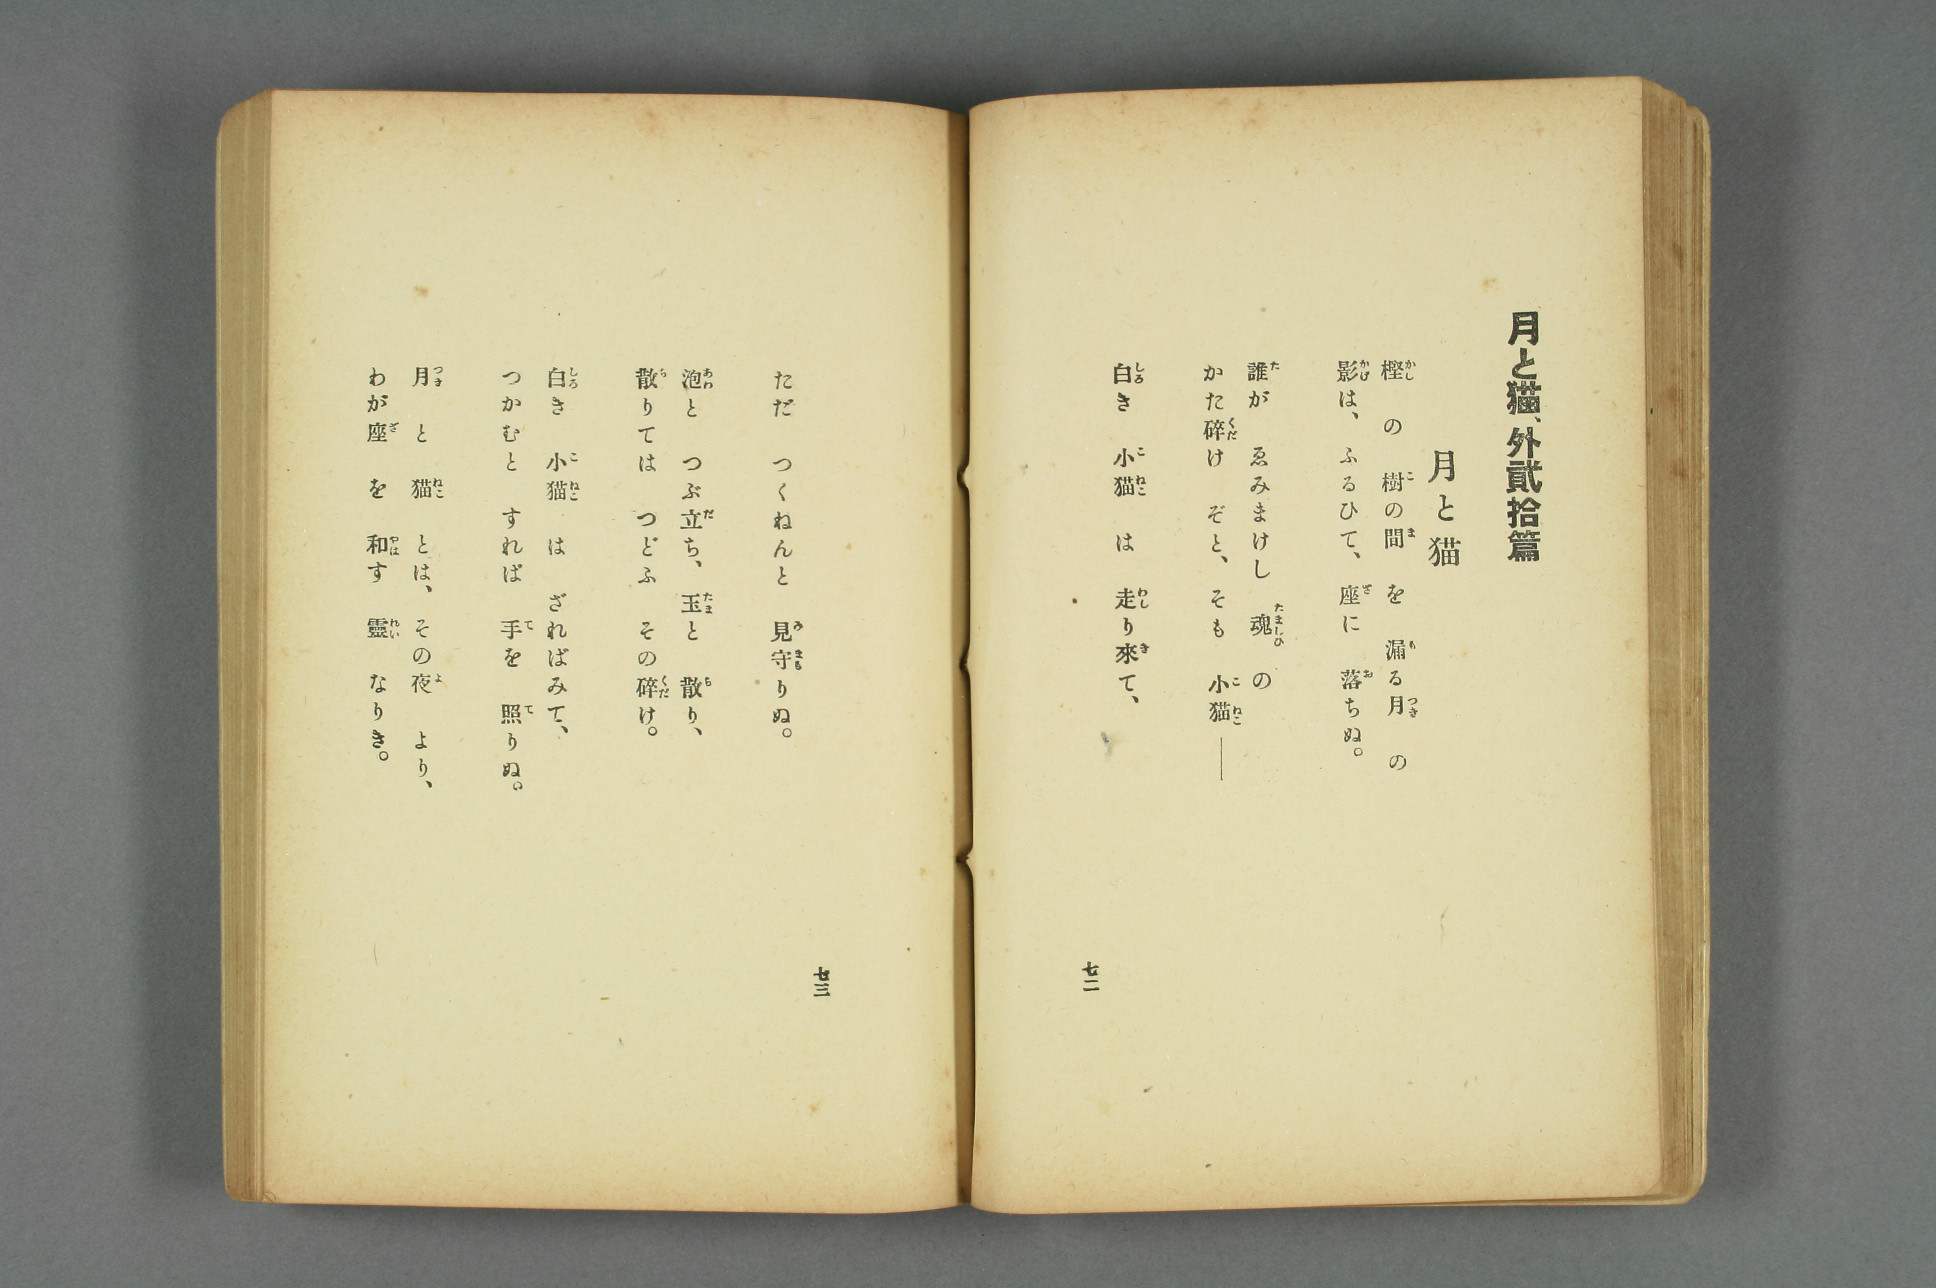 月と猫、外貳拾篇
月と猫
樫の樹の間を漏る月の
影は、ふるひて、座に落ちぬ。
誰がゑみまけし魂の
かた碎けぞと、そも小猫――
白き小猫は走り來て、
七二
ただつくねんと見守りぬ。
泡とつぶ立ち、玉と散り、
散りてはつどふその碎け。
白き小猫はざればみて、
つかむとすれば手を照りぬ。
月と猫とは、その夜より、
わが座を和す靈なりき。
七三